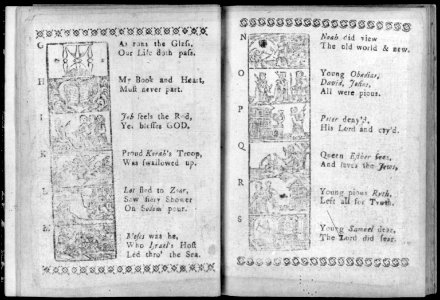 G
As runs the Glass,
Our Life doth pass.
H
My Book and Heart,
Must never part.
I
Job feels the Rod,
Yet blesses GOD.
K
Proud Korah's Troop,
Was swallowed up.
L
Lot fled to Zoar,
Saw fiery Shower
On Sodom pour.
M
Moses was he,
Who Israel's Host
Led thro' the Sea.
N
Noah did view
The old world & new.
O
Young Obadias,
David, Josias,
All were pious.
P
Peter deny'd,
His Lord and cry'd.
Q
Queen Esther sues,
And saves the Jews,
R
Young pious Ruth,
Left all for Truth.
S
Young Samuel dear,
The Lord did fear.